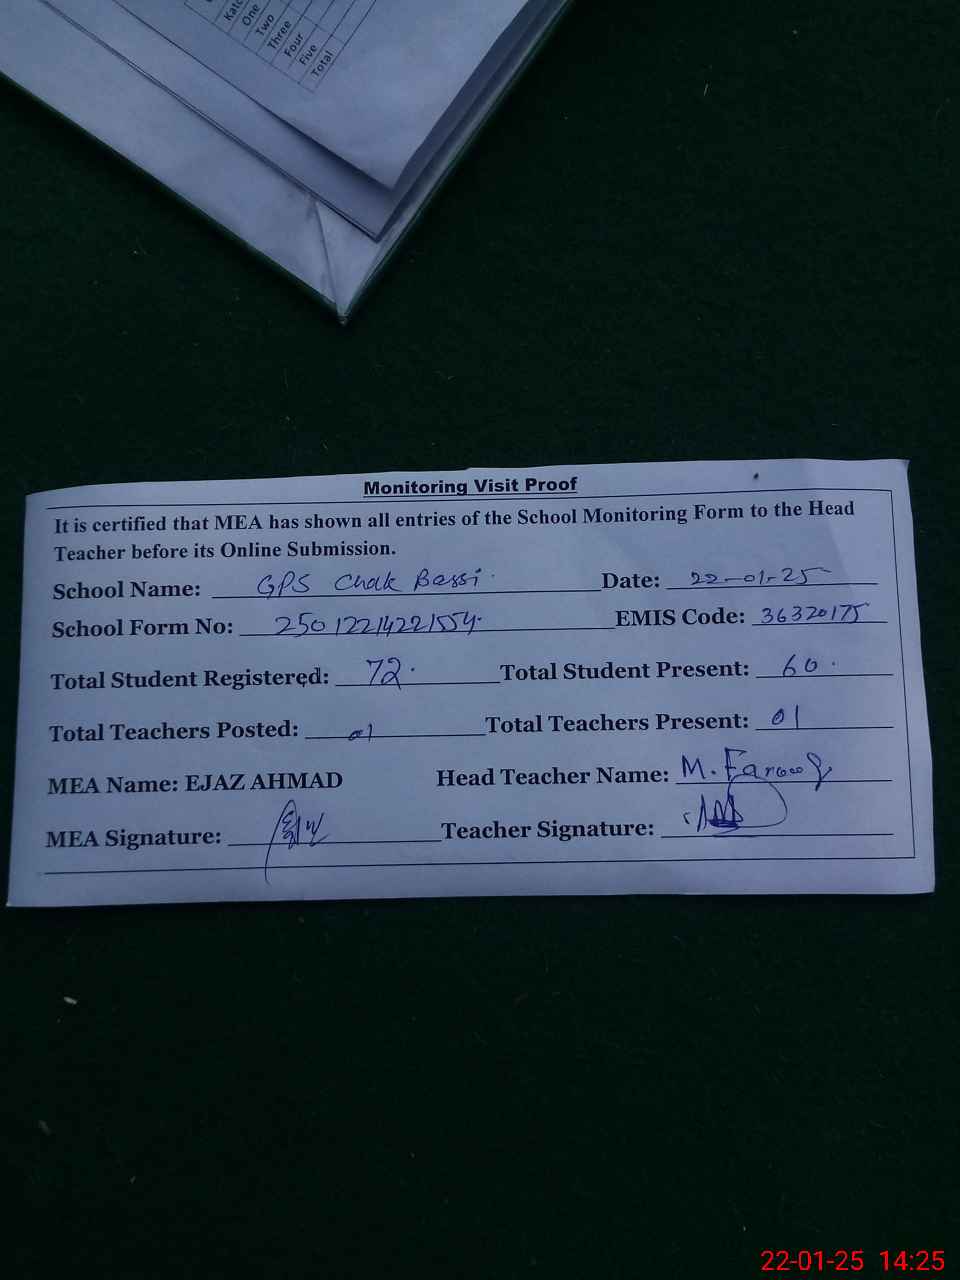 One
Two
Three
Four
Five
Total
Monitoring Visit Proof
It is certified that MEA has shown all entries of the School Monitoring Form to the Head
Teacher before its Online Submission.
School Name: GPS Chak Bassi. Date: 22-01-25
School Form No: 25012214221554. EMIS Code: 36320175
Total Student Registered: 72. Total Student Present: 60.
Total Teachers Posted: 01 Total Teachers Present: 01
MEA Name: EJAZ AHMAD Head Teacher Name: M. Farooq
MEA Signature: Teacher Signature:
22-01-25 14:25